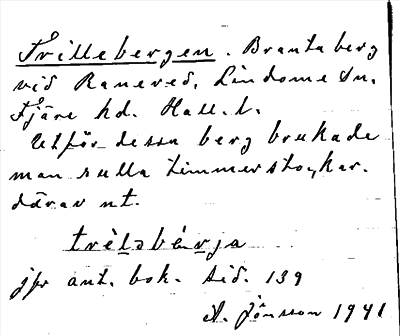 Trillebergen. Branta berg
vid Ranered, Lindome sn.
Fjäre hd. Hall. l.
Utför dessa berg brukade
man rulla timmerstockar.
därav nt.
trèl̯abǽrja
jfr ant. bok. sid. 139
A. Jönsson 1941